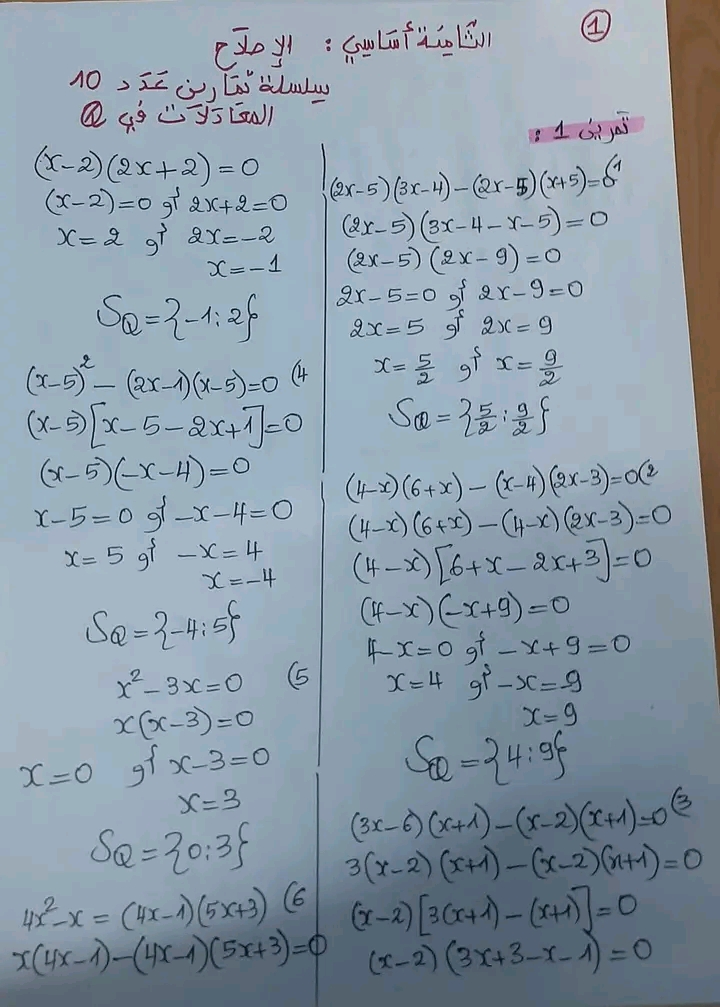 ①
الثّامِنَة أسَاسِي : الإصلاَح
سِلسلة تمَارين عَدَد 10
المعَادلاَت في Q
تمرين 1 :
(2x-5)(3x-4)-(2x-5)(x+5)=0 (1
(2x-5)(3x-4-x-5)=0
(2x-5)(2x-9)=0
2x-5=0 أو 2x-9=0
2x=5 أو 2x=9
x=5/2 أو x=9/2
S_Q={5/2;9/2}
(4-x)(6+x)-(x-4)(2x-3)=0 (2
(4-x)(6+x)-(4-x)(2x-3)=0
(4-x)[6+x-2x+3]=0
(4-x)(-x+9)=0
4-x=0 أو -x+9=0
x=4 أو -x=-9
x=9
S_Q={4;9}
(3x-6)(x+1)-(x-2)(x+1)=0 (3
3(x-2)(x+1)-(x-2)(x+1)=0
(x-2)[3(x+1)-(x+1)]=0
(x-2)(3x+3-x-1)=0
(x-2)(2x+2)=0
(x-2)=0 أو 2x+2=0
x=2 أو 2x=-2
x=-1
S_Q={-1;2}
(x-5)²-(2x-1)(x-5)=0 (4
(x-5)[x-5-2x+1]=0
(x-5)(-x-4)=0
x-5=0 أو -x-4=0
x=5 أو -x=4
x=-4
S_Q={-4;5}
x²-3x=0 (5
x(x-3)=0
x=0 أو x-3=0
x=3
S_Q={0;3}
4x²-x=(4x-1)(5x+3) (6
x(4x-1)-(4x-1)(5x+3)=0